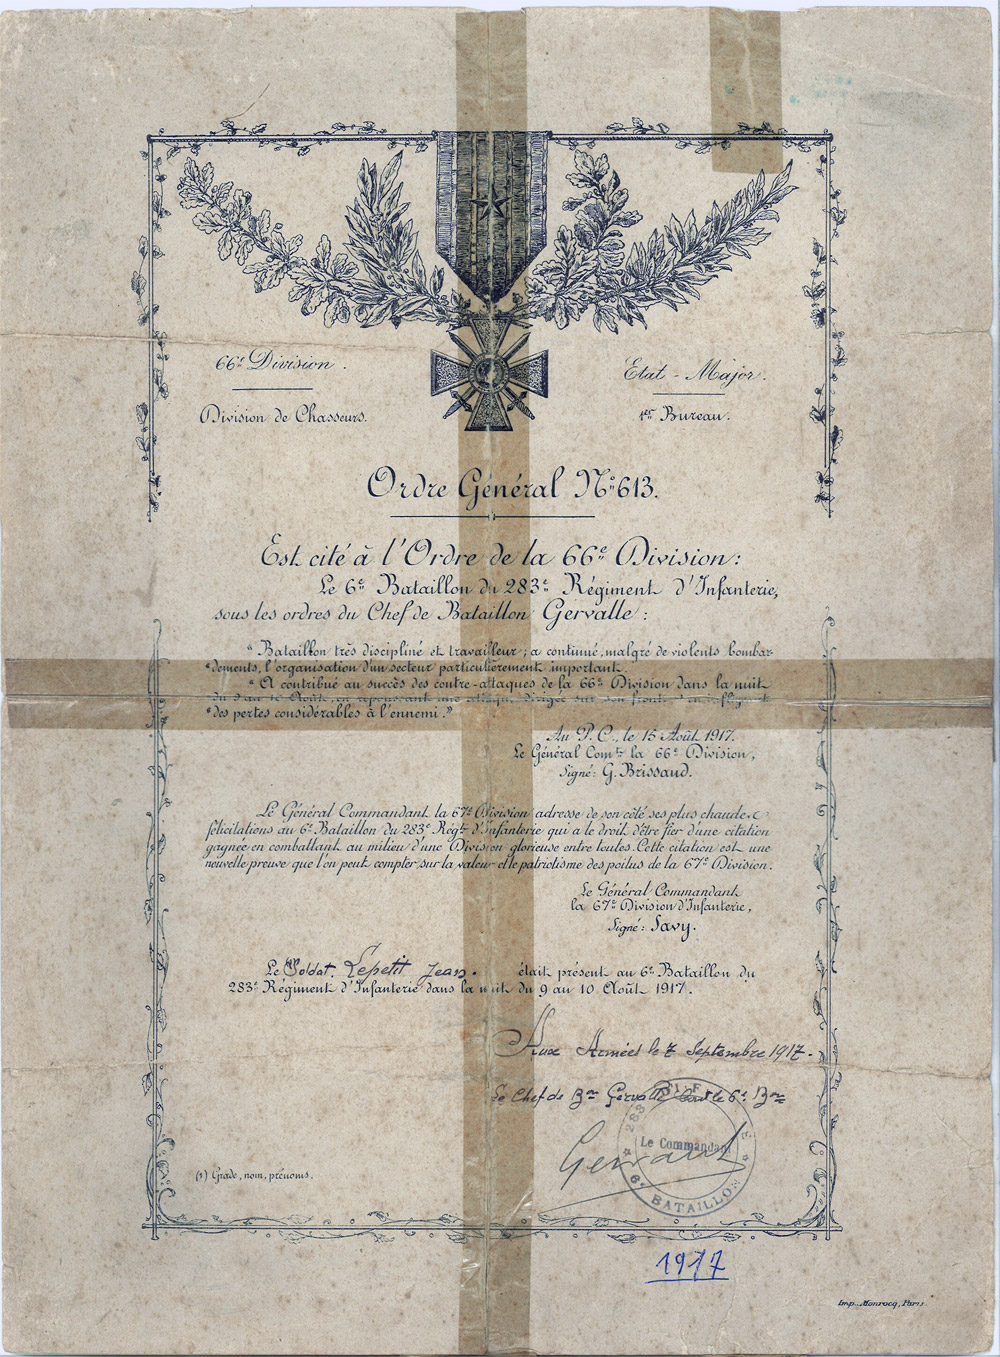 66e Division.
Division de Chasseurs.
Etat-Major.
1er Bureau.
Ordre Général No 613.
Est cité à l'Ordre de la 66e Division:
Le 6e Bataillon du 283e Régiment d'Infanterie,
sous les ordres du Chef de Bataillon Gervalle:
"Bataillon très discipliné et travailleur; a continué, malgré de violents bombar-
"dements, l'organisation d'un secteur particulièrement important.
"A contribué au succès des contre-attaques de la 66e Division dans la nuit
en repoussant une attaque dirigée sur son front
"des pertes considérables à l'ennemi."
Au P.C., le 15 Août 1917.
Le Général Comt la 66e Division,
Signé: G. Brissaud.
Le Général Commandant la 67e Division adresse de son côté ses plus chaudes
félicitations au 6e Bataillon du 283e Régt d'Infanterie qui a le droit d'être fier d'une citation
gagnée en combattant au milieu d'une Division glorieuse entre toutes. Cette citation est une
nouvelle preuve que l'on peut compter sur la valeur et le patriotisme des poilus de la 67e Division.
Le Général Commandant
la 67e Division d'Infanterie,
Signé: Savy.
Le Soldat Lepetit Jean. était présent au 6e Bataillon du
283e Régiment d'Infanterie dans la nuit du 9 au 10 Août 1917.
Aux Armées le 7 Septembre 1917.
Le Chef de Bon Gervalle Cont le 6e Bon
283
Le Commandant
6e BATAILLON
(1) Grade, nom, prénoms.
1917
Imp. Monrocq, Paris.